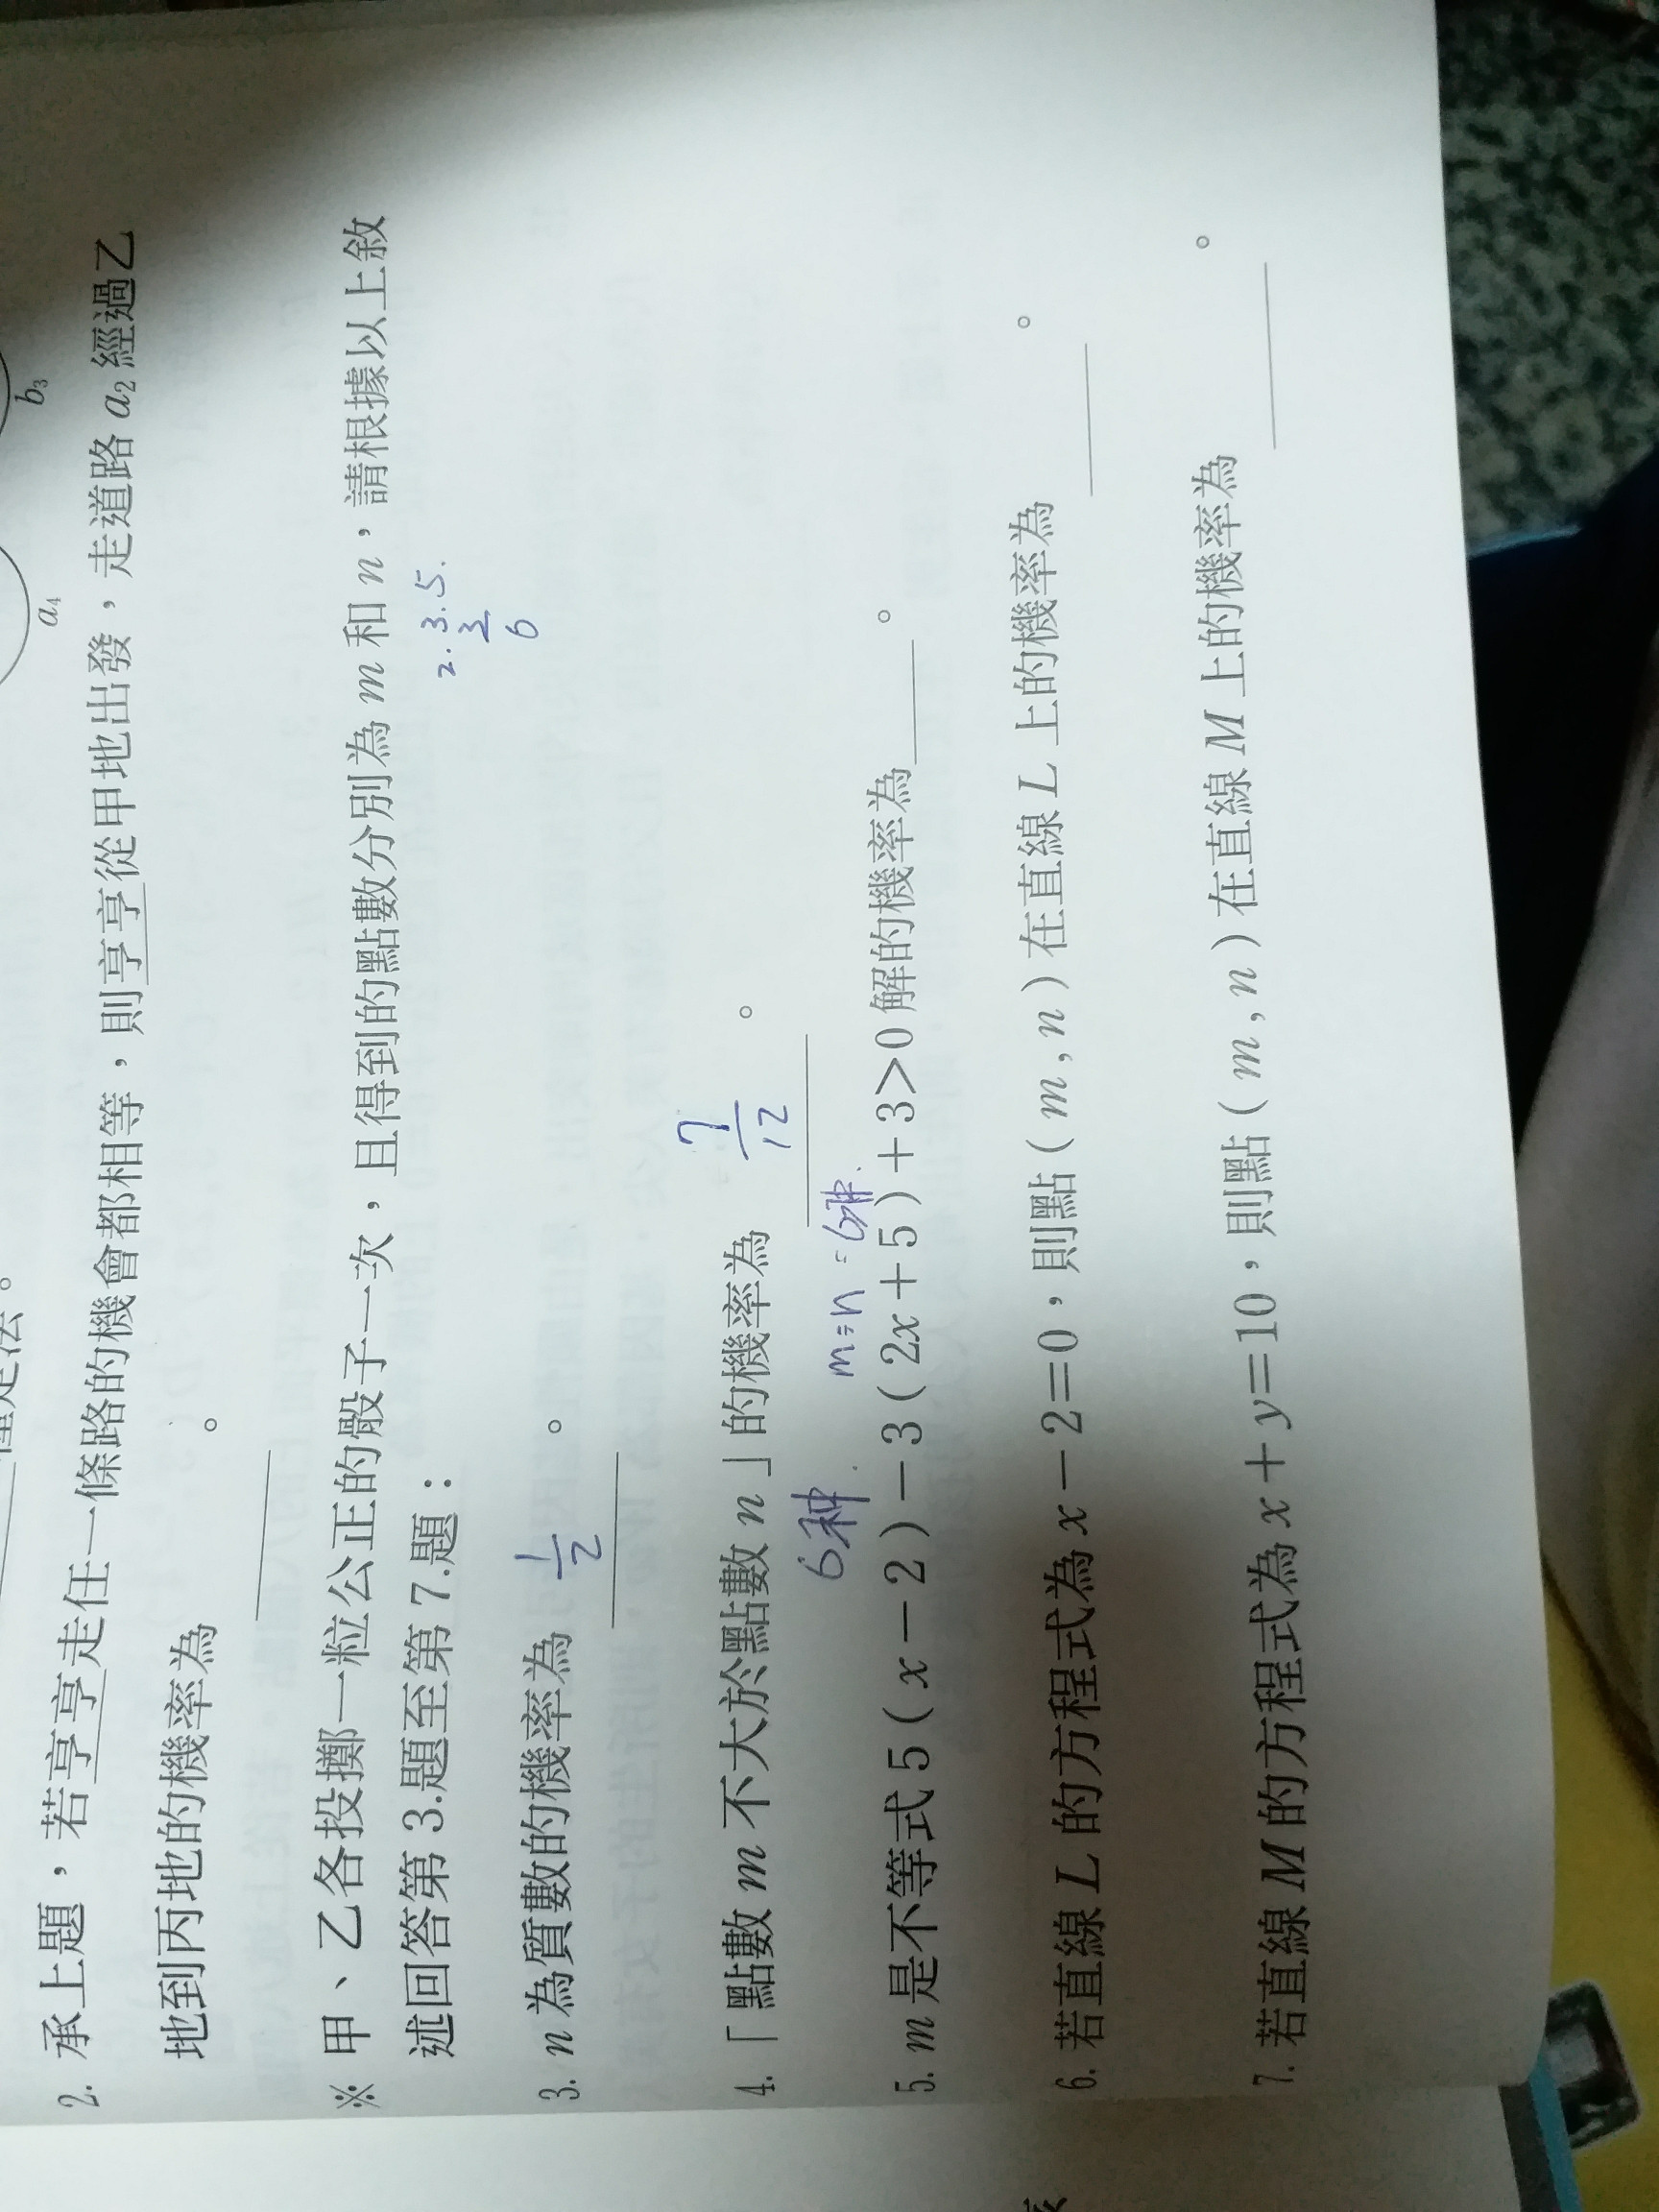 b₃
a₄
2. 承上題，若亨亨走任一條路的機會都相等，則亨亨從甲地出發，走道路 a₂ 經過乙
地到丙地的機率為 ＿＿＿。
※ 甲、乙各投擲一粒公正的骰子一次，且得到的點數分別為 m 和 n，請根據以上敘
述回答第 3.題至第 7.題：
2. 3. 5.
3/6
3. n 為質數的機率為 1/2 。
4. 「點數 m 不大於點數 n」的機率為 7/12 。
6种. m=n = 6种.
5. m 是不等式 5(x－2)－3(2x＋5)＋3>0 解的機率為＿＿＿。
6. 若直線 L 的方程式為 x－2=0，則點(m,n)在直線 L 上的機率為 ＿＿＿。
7. 若直線 M 的方程式為 x＋y=10，則點(m,n)在直線 M 上的機率為 ＿＿＿。